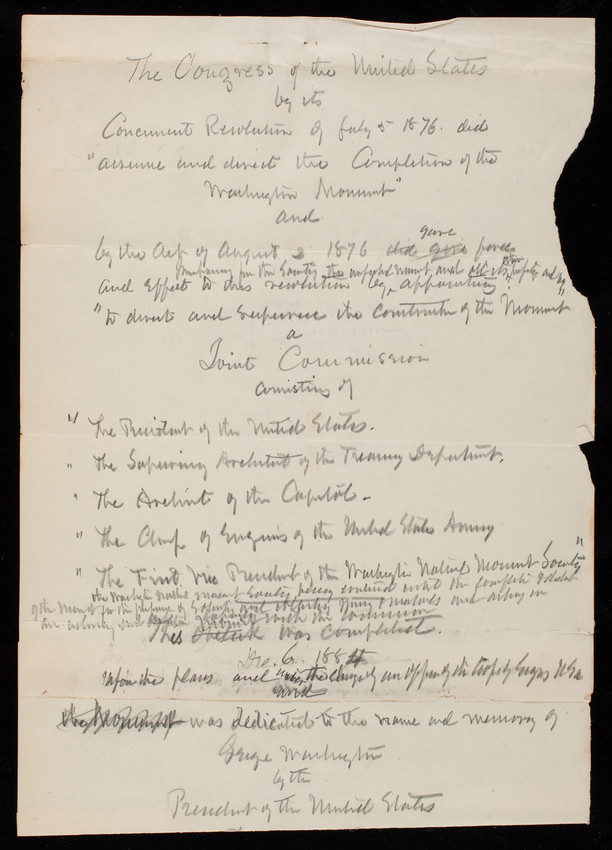 The Congress of the United States
by its
Concurrent Resolution of July 5 1876. did
"assume and direct the Completion of the
Washington Monument"
and
gave
by the Act of August 2 1876 did give force
for the Society the and
and Effect to this resolution by appointing
"to direct and supervise the Construction of the Monument"
a
Joint Commission
consisting of
" The President of the United States.
" The Supervising Architect of the Treasury Department.
" The Architect of the Capitol.
" The Chief of Engineers of the United States Army
" The First Vice President of the Washington National Monument Society"
the Washington National Monument Society being continued until the completion
of the Monument for the purpose of and acting
with the Commission
This was completed.
Dec. 6. 1884
upon the plans and under the charge of an Officer of the Corps of Engrs USA
and
the Monument was dedicated to the name and memory of
George Washington
by the
President of the United States